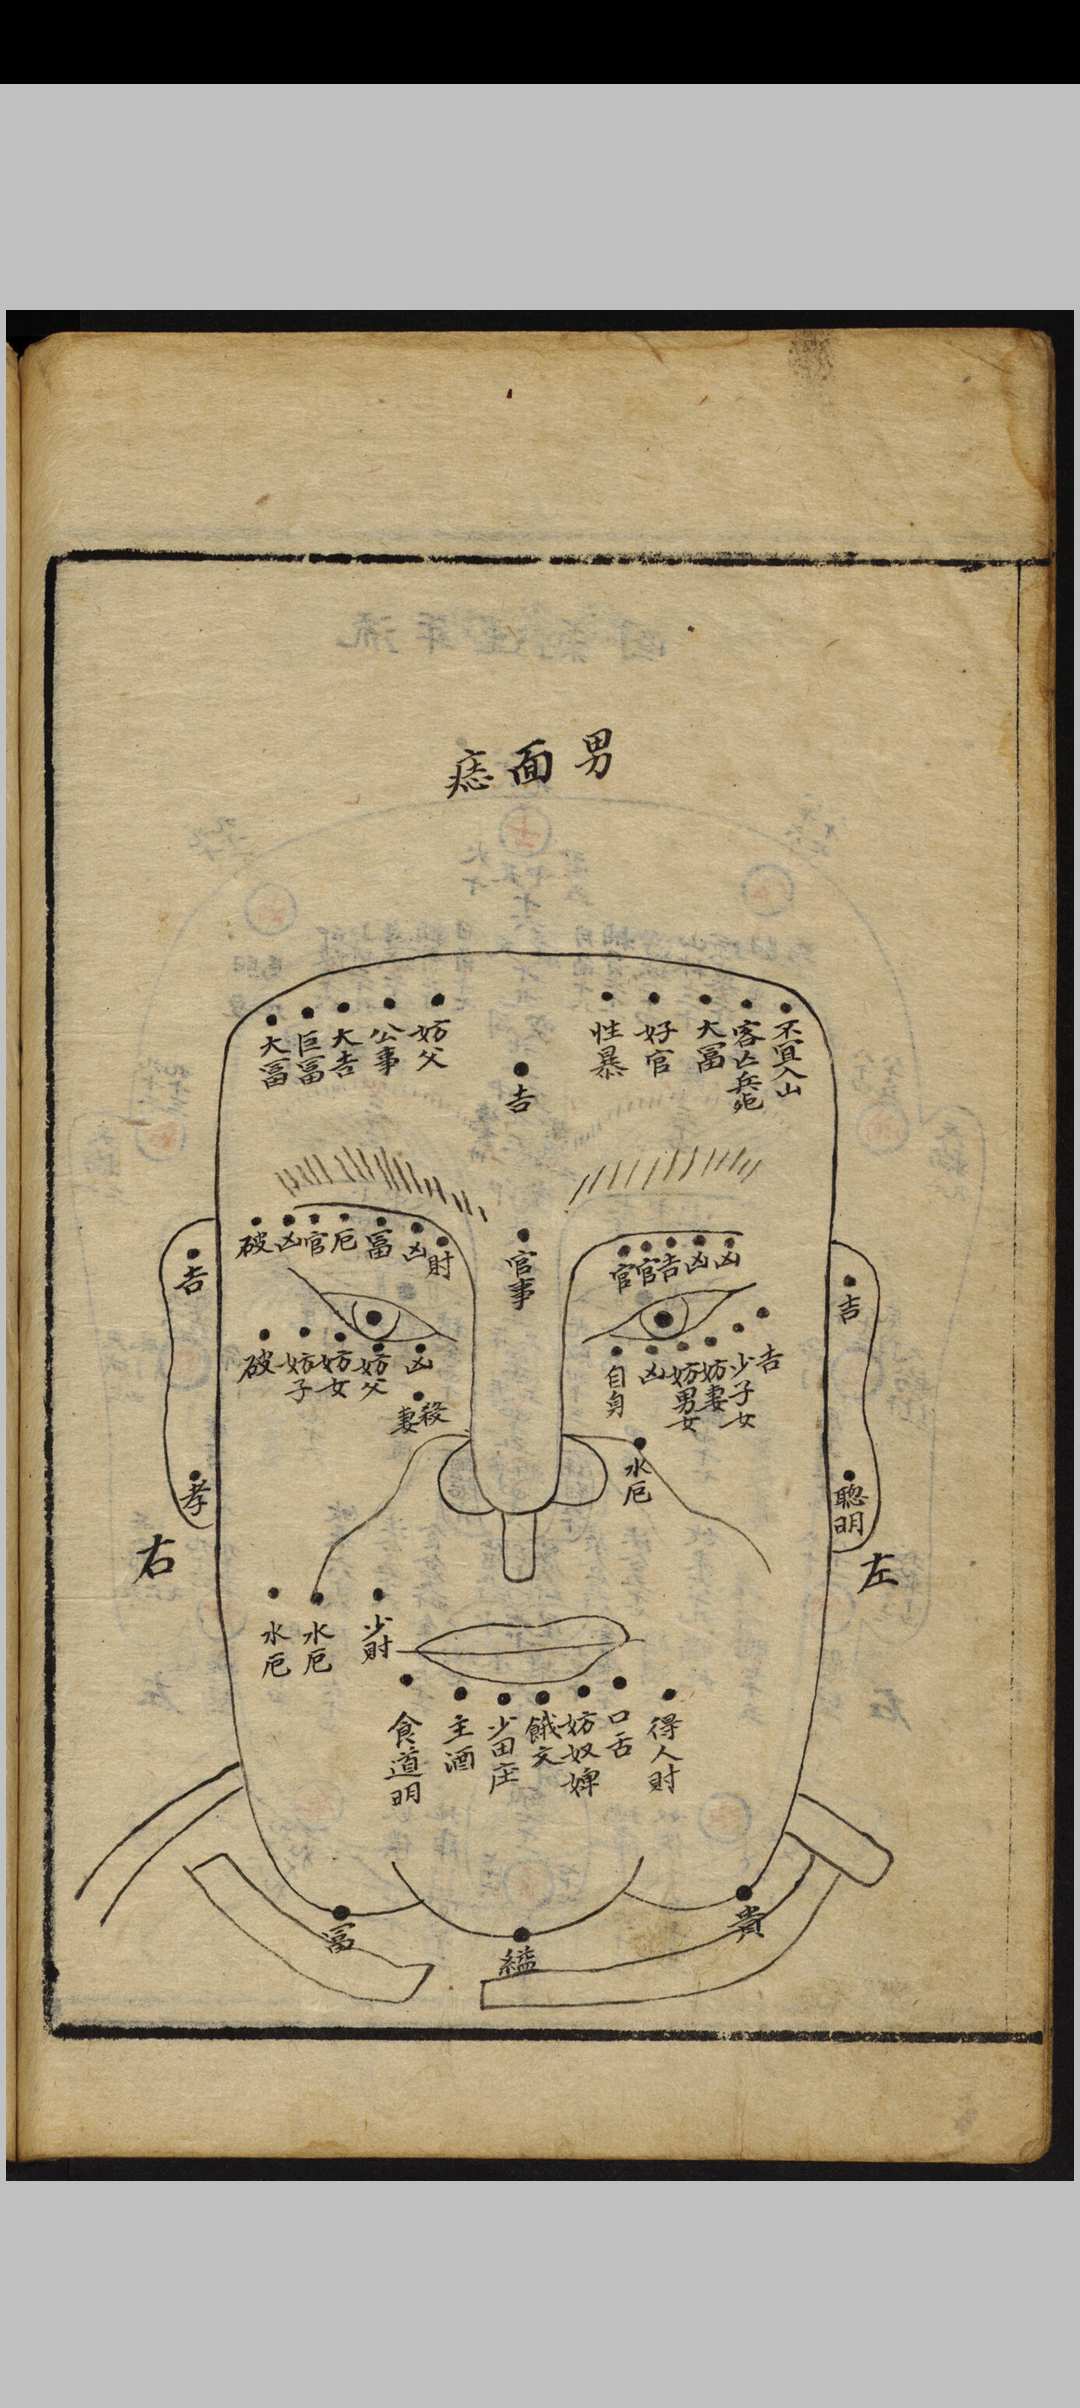 男面痣
不宜入山
客亡兵死
大冨
好官
性暴
吉
妨父
公事
大吉
巨冨
大冨
凶
凶
吉
官
官
官事
財
凶
冨
厄
官
凶
破
吉
吉
吉
少子女
妨妻
妨男女
凶
自身
凶
妨父
妨女
妨子
破
殺妻
水厄
聰明
孝
左
右
少財
水厄
水厄
得人財
口舌
妨奴婢
餓文
少田庄
主酒
食道明
貴
冨